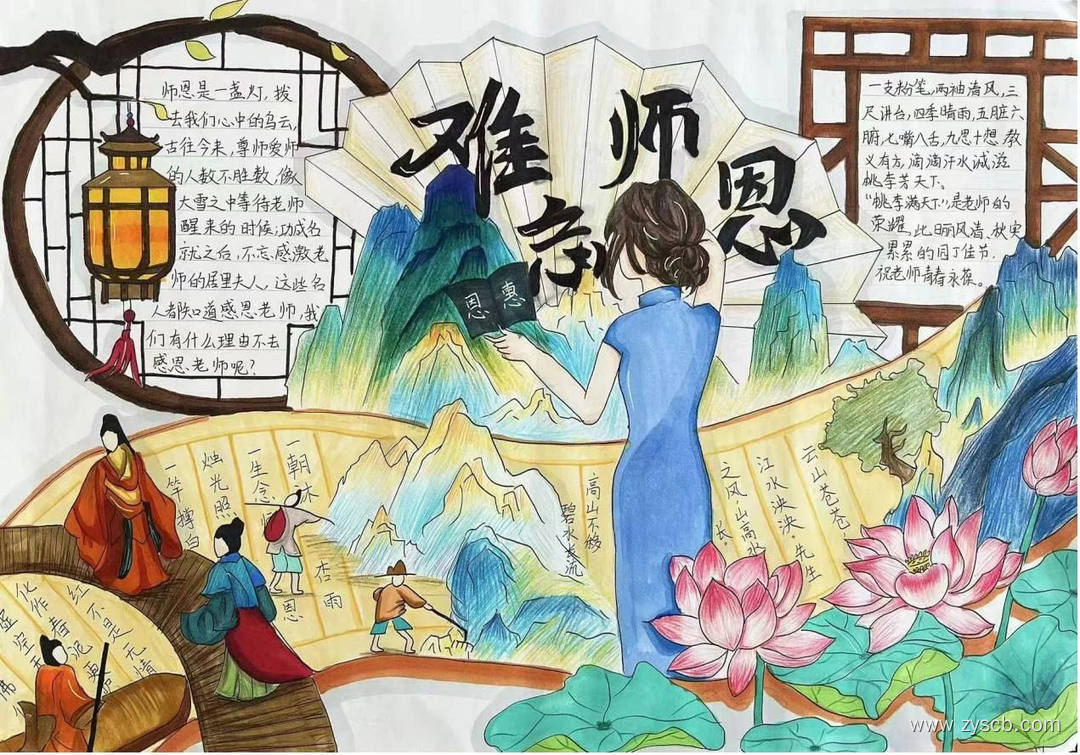 难忘师恩
师恩是一盏灯,拨
去我们心中的乌云,
古往今来,尊师爱师
的人数不胜数,像
大雪之中等待老师
醒来的时候,功成名
就之后,不忘感激老
师的居里夫人,这些名
人都知道感恩老师,我
们有什么理由不去
感恩老师呢?
一支粉笔,两袖清风,三
尺讲台,四季晴雨,五脏六
腑,七嘴八舌,九思十想,教
义有方,滴滴汗水
桃李芳天下。
“桃李满天下”,是老师的
荣耀,风清、秋实
累累的园丁佳节,
祝老师青春永葆。
恩惠
云山苍苍
江水泱泱·先生
之风·山高水
长
高山不移
碧水流
一朝沐杏雨
一生念师恩
烛光照
一竿撑白
红不是无情
化作春泥更
虚空
佛
www.zyscb.com